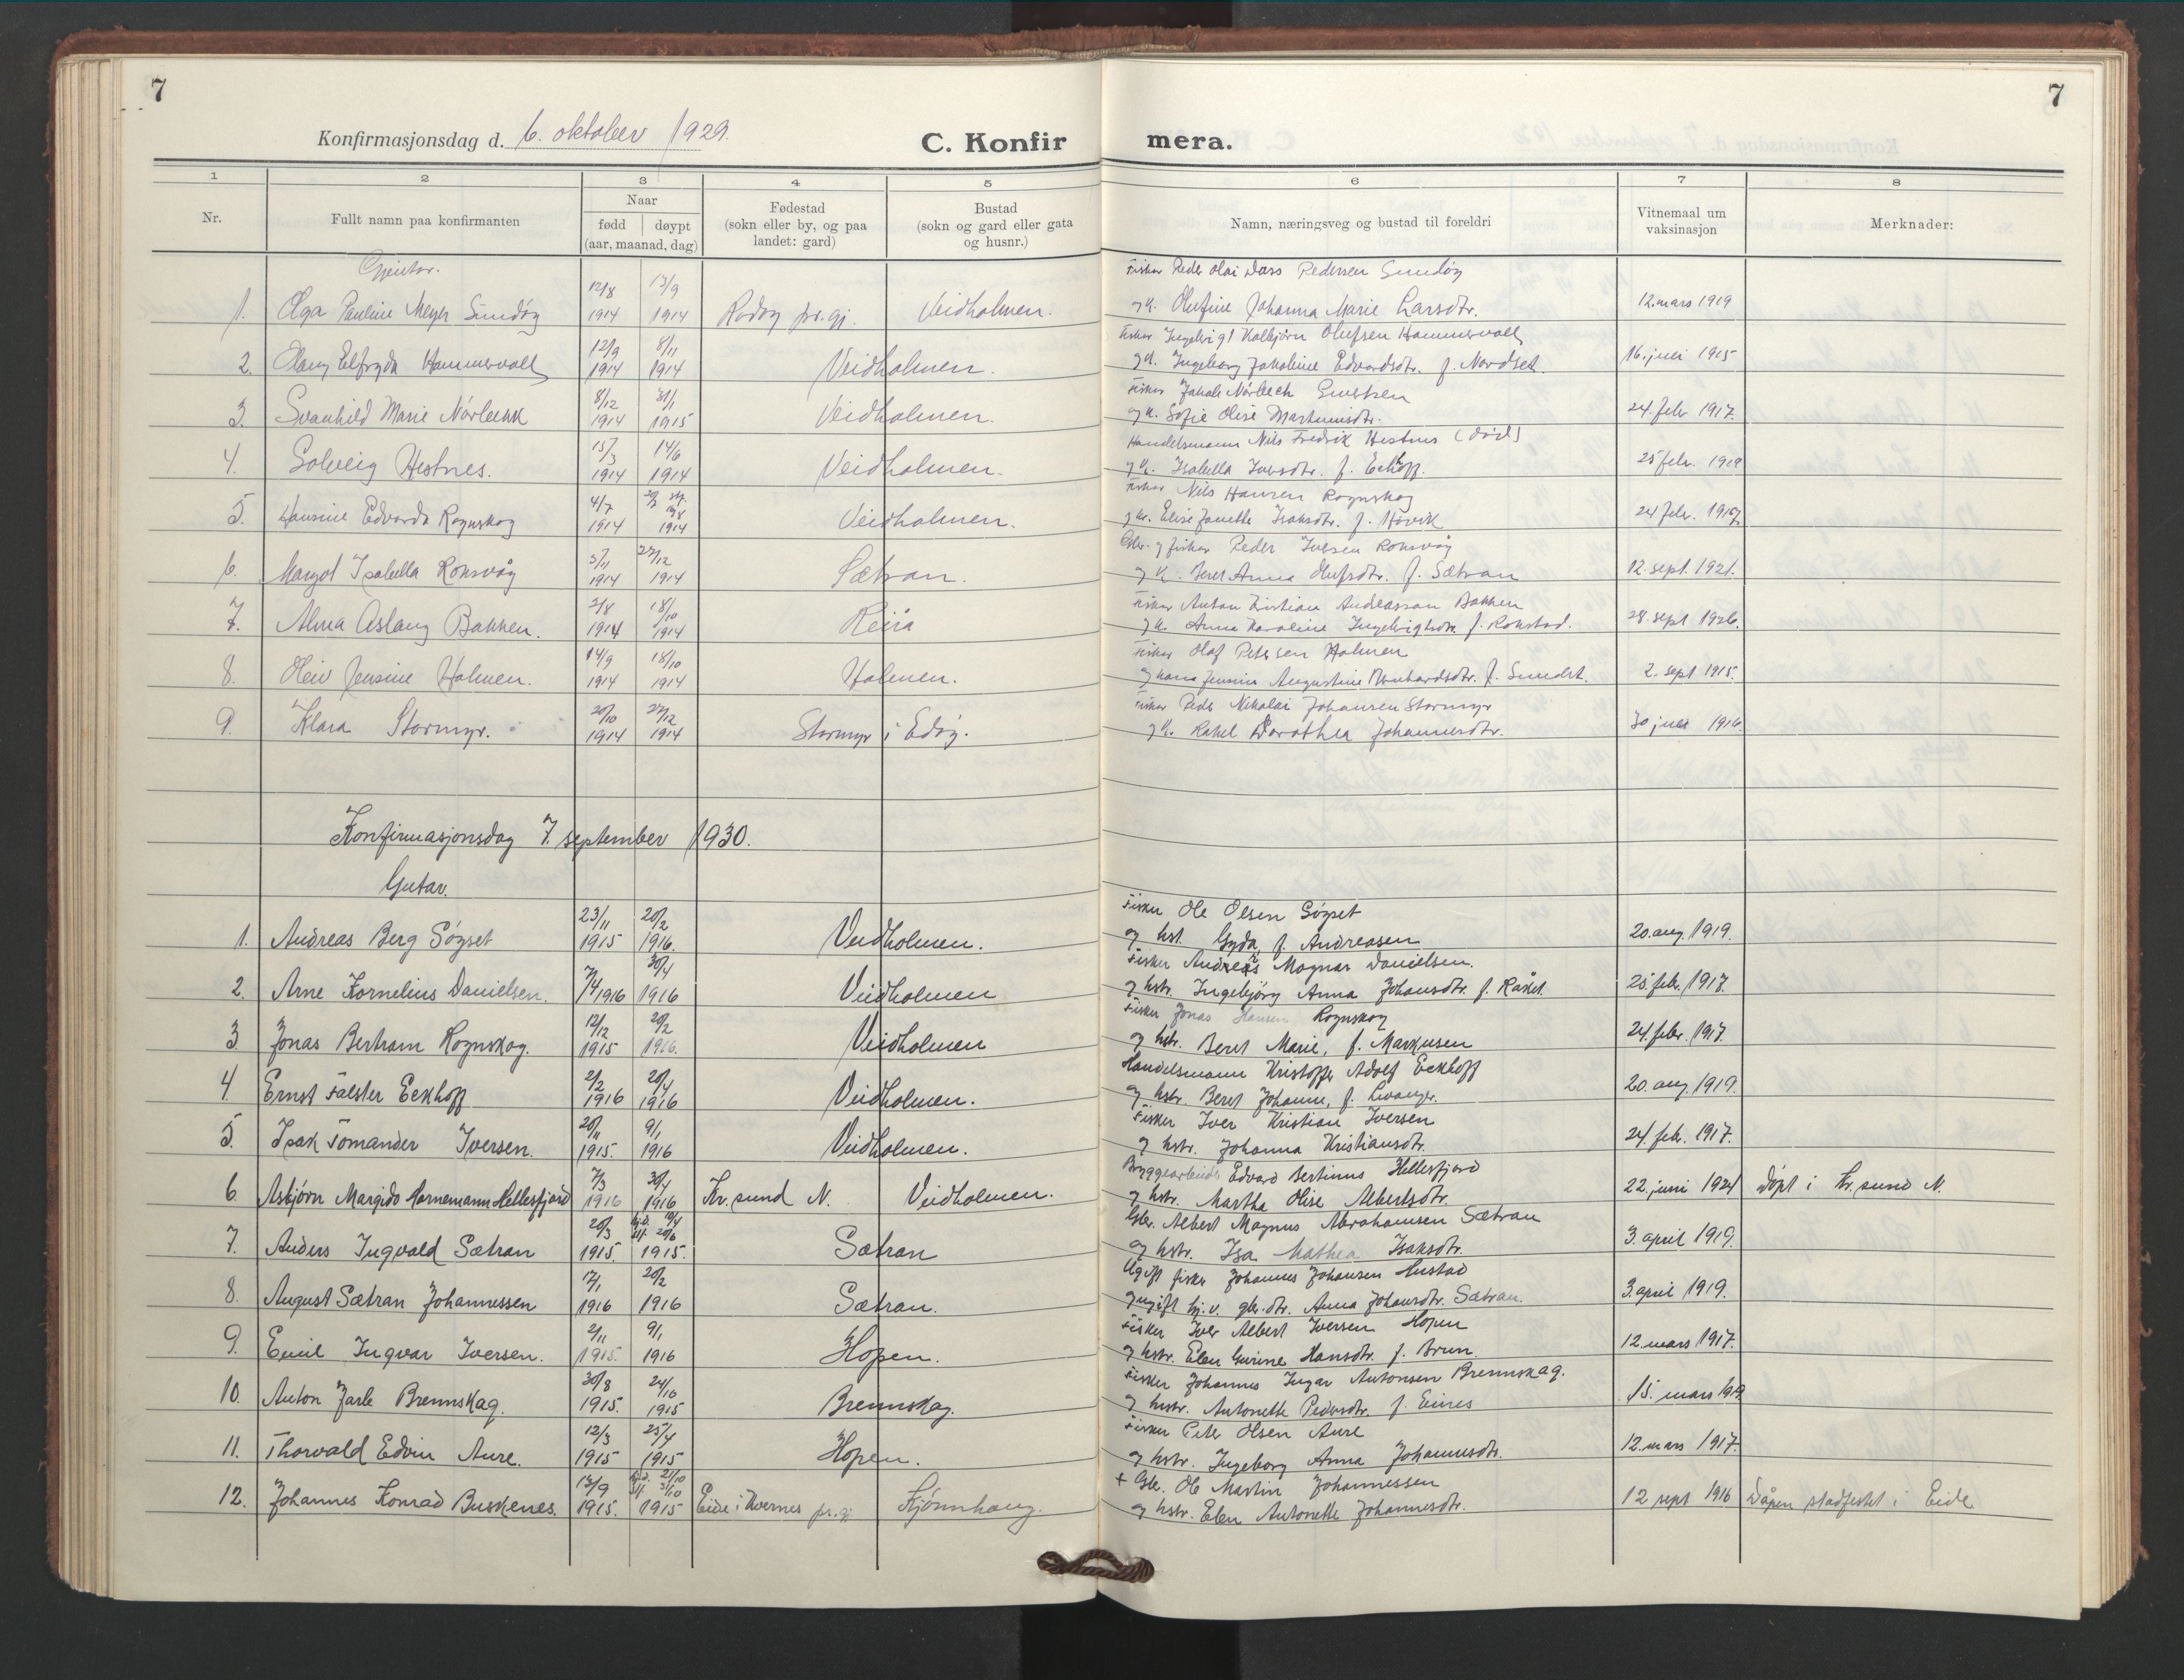 7
7
Konfirmasjonsdag d. 6. oktober 1929.
C. Konfirmera.
1 2 3 4 5 6 7 8
Nr. Fullt namn paa konfirmanten Naar fødd døypt (aar, maanad, dag) Fødestad (sokn eller by, og paa landet: gard) Bustad (sokn og gard eller gata og husnr.) Namn, næringsveg og bustad til foreldri Vitnemaal um vaksinasjon Merknader:
Gjentor.
Fisker Peder Olai Dass Pedersen Sundøy
1. Olga Pauline Meyer Sundøy 12/8 1914 13/9 1914 Rødøy pr.gj. Veidholmen. og k. Olufine Johanna Marie Larsdtr. 12. mars 1919
Olufsen Hammervoll
2. Elfryda Hammervoll 12/9 1914 8/11 1914 Veidholmen. og k. Ingeborg Jakobine Edvardsdtr. f. Nordset. 16. juli 1915
Fisker
3. Svanhild Marie 8/12 1914 31/1 1915 Veidholmen. og k. Sofie Olise Martinusdtr. 24. febr 1917.
Handelsmann Nils Fredrik Hestnes (død)
4. Solveig Hestnes. 15/3 1914 14/6 1914 Veidholmen. og k. Isabella Iversdtr. f. Eckhoff. 25 febr. 1919
Fisker Nils Hansen Rognskog
5. Hansine Edvarda Rognskog 4/7 1914 1914 Veidholmen. og k. Elise Janette Isaksdtr. f. Høvik 24 febr. 1917
Gbr. og fisker Peder Iversen Roksvåg
6. Margot Isabella Roksvåg 3/11 1914 27/12 1914 Sætran. og k. Beret Anna Olufsdtr. f. Sætran 12. sept. 1921.
Fisker Anton Kristian Andreassen Bakken
7. Alma Aslaug Bakken. 2/8 1914 18/10 1914 og k. Anna Karoline f. Rokstad. 28. sept 1926.
Fisker Olaf Petersen Holmen
8. Oleiv Jensine Holmen. 14/9 1914 18/10 1914 Holmen. og kona Jensine Augustine Bernhardsdtr. f. Sundet. 2. sept 1915.
Fisker Peder Nikolai Johansen Stormyr
9. Klara Stormyr. 20/10 1914 27/12 1914 Stormyr i Edøy. og k. Rakel Dorothea Johannesdtr. 30 juni 1916.
Konfirmasjonsdag 7. september 1930.
Gutar.
Fisker Ole Olsen Søgset
1. Andreas Berg Søgset 23/11 1915 20/2 1916. Veidholmen. og hst. Gyda, f. Andreasen 20. aug. 1919.
Fisker Magnar Danielsen.
2. Arne Kornelius Danielsen. 7/4 1916 30/4 1916 Veidholmen og hstr. Ingebjörg Anna Johansdtr. f. Råket. 25. febr. 1917.
Fisker Jonas Hansen Rognskog
3 Jonas Bertram Rognskog. 12/12 1915 20/2 1916. Veidholmen og hstr. Beret Marie, f. Markusen 24. febr. 1917.
Handelsmann Kristoffer Adolf Eckhoff
4. Ernst Falster Eckhoff 2/2 1916 20/4 1916 Veidholmen. og hstr. Beret Johanne, f. Levanger. 20. aug. 1919.
Fisker Iver Kristian Iversen
5. Isak Tomander Iversen. 20/11 1915. 9/1 1916 Veidholmen. og hstr. Johanna Kristiansdtr. 24. feb. 1917.
Bryggearbeider Edvard Bertinus Hellesfjord
6. Asbjörn Margido Hornemann Hellesfjord 7/3 1916 30/4 1916 Kr.sund N. Veidholmen. og hstr. Martha Olise Albertsdtr. 22. juni 1921 Döpt i Kr.sund N.
Gbr. Albert Magnus Abrahamsen Sætran
7. Anders Ingvald Sætran 20/3 1915. hj.d. 18/4 stf. 20/6 1915. Sætran og hstr. Isa Mathea Isaksdtr. 3. april 1919.
Ugift fisker Johannes Johansen Hustad
8. August Sætran Johannessen 17/1 1916 20/2 1916 Sætran. og ugift hj.v. gbr.dtr. Anna Johansdtr. Sætran. 3. april 1919.
Fisker Iver Albert Iversen Hopen
9. Emil Ingvar Iversen. 2/11 1915. 9/1 1916 Hopen. og hstr. Elen Gurine Hansdtr. f. Brun. 12. mars 1917.
Fisker Johannes Ingar Antonsen Brennskag.
10. Anton Jarle Brennskag. 30/8 1915. 24/10 1915 Brennskag. og hstr. Antonette Pedersdtr. f. Eines 15. mars 1919
Fisker Peter Olsen Aure
11. Thorvald Edvin Aure. 12/3 1915 25/4 1915 Hopen. og hstr. Ingeborg Anna Johannesdtr. 12. mars 1917.
+ Gbr. Ole Martin Johannessen
12. Johannes Konrad Buskenes. 13/9 1915. hj.d. 2/10 stf. 31/10 1915 Eide i Kvernes pr.gj. Kjønnhaug. og hstr. Elen Antonette Johannesdtr. 12 sept 1916 Dåpen stadfestet i Eide